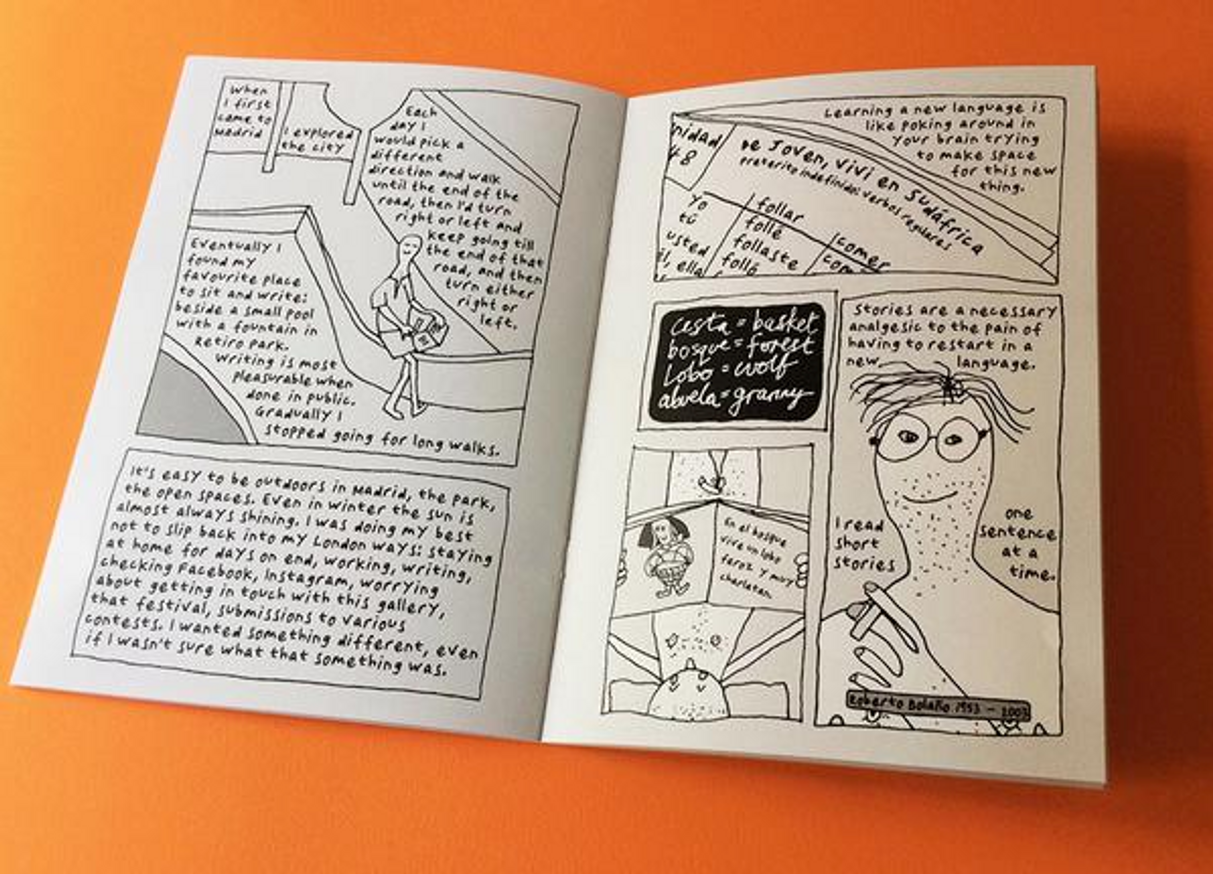 When
I first
came to
Madrid
I explored
the city
Each
day I
would pick a
different
direction and walk
until the end of the
road, then I'd turn
right or left and
keep going till
the end of that
road, and then
turn either
right or
left.
Eventually I
found my
favourite place
to sit and write:
beside a small pool
with a fountain in
Retiro park.
Writing is most
pleasurable when
done in public.
Gradually I
stopped going for long walks.
It's easy to be outdoors in Madrid, the park,
the open spaces. Even in winter the sun is
almost always shining. I was doing my best
not to slip back into my London ways: staying
at home for days on end, working, writing,
checking Facebook, Instagram, worrying
about getting in touch with this gallery,
that festival, submissions to various
contests. I wanted something different, even
if I wasn't sure what that something was.
Learning a new language is
like poking around in
your brain trying
to make space
for this new
thing.
nidad
48
De joven, viví en Sudáfrica
preterito indefinido: verbos regulares
yo
tú
usted
él, ella
follar
follé
follaste
folló
comer
com
cesta = basket
bosque = forest
lobo = wolf
abuela = granny
Stories are a necessary
analgesic to the pain of
having to restart in a
new language.
En el bosque
vive un lobo
feroz y muy
charlatan.
I read
short
stories
one
sentence
at a
time.
Roberto Bolaño 1953 - 2003